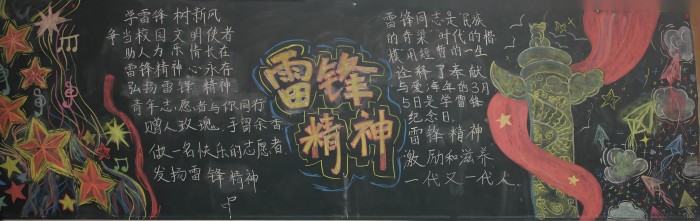 学雷锋 树新风
争当校园文明使者
助人为乐情长在
雷锋精神心永存
弘扬雷锋 精神
青年志愿者与你同行
赠人玫瑰,手留余香
做一名快乐的志愿者
发扬雷锋精神
雷锋
精神
雷锋同志是民族
的脊梁,时代的楷
模,用短暂的一生
诠释了奉献
与爱,每年的3月
5日是学雷锋
纪念日。
雷锋精神
激励和滋养
一代又一代人.